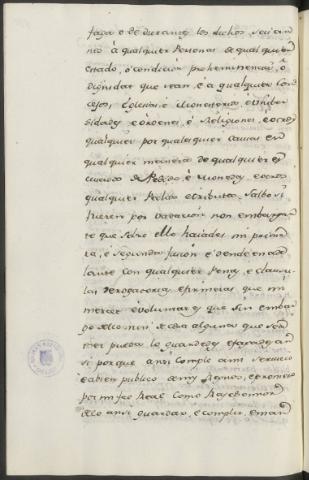 faga o de durante los dichos, seiscien
tos à qualquier Personas de qualquier
estado, ó condición preheminencia, ó
dignidad que sean, é a qualquier Con
cejos, Eglesias, é Monesterios, é Univer
sidades, é órdenes, é Religiones, é otros
qualquier por qualesquier causas en
qualquier manera de qualquier
de Pedido, é Monedas, é otros
qualquier Pechos é tributos, salbo si
fueren por vacación non embargan
te que sobre ello hayades mi prime
ra, é segunda jusion, é dende en ade
lante con qualquier Penas, é clausu
las derogatorias, é firmezas que mi
merced, é voluntad es que sin embar
go de lo en ni de cosa alguna que
puedan lo guardedes é fagades an
si porque ansi cumple a mi servicio
é a bien publico de mis Regnos, é prometo
por mi fee Real como Rey é Señor
de lo ansi guardar, é complir, é mand